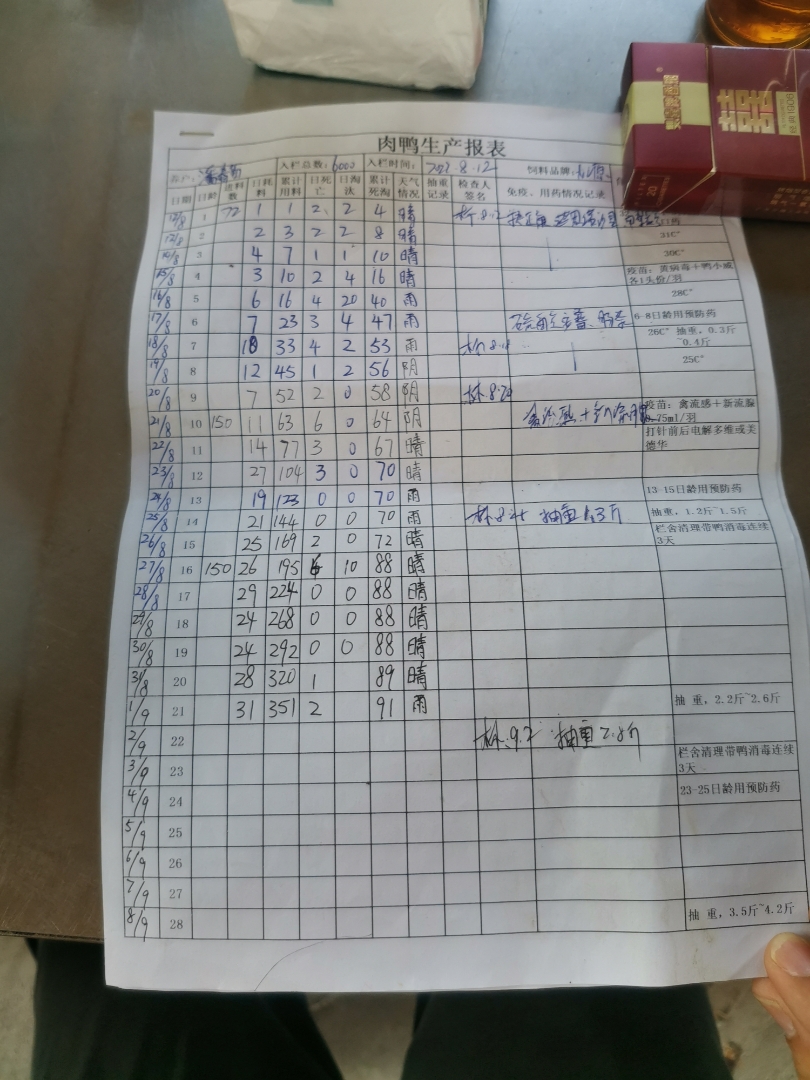 肉鸭生产报表
入栏总数: 6000 入栏时间: 8.12 饲料品牌:
日期 日龄 进料数 日耗料 累计用料 日死亡 日淘汰 累计死淘 天气情况 抽重记录 检查人签名 免疫、用药情况记录
1 72 1 1 2 2 4 晴
2 2 3 2 2 8 晴 31C°
3 4 7 1 1 10 晴 30C°
15/8 4 3 10 2 4 16 晴 疫苗: 黄病毒+鸭小减各1头份/羽
16/8 5 6 16 4 20 40 雨 28C°
17/8 6 7 23 3 4 47 雨 6-8日龄用预防药
18/8 7 10 33 4 2 53 雨 林 8.18 26C° 抽重,0.3斤~0.4斤
19/8 8 12 45 1 2 56 阴 25C°
20/8 9 7 52 2 0 58 阴 林 8.20
21/8 10 150 11 63 6 0 64 阴 疫苗: 禽流感+新流腺 0.75ml/羽
22/8 11 14 77 3 0 67 晴 打针前后电解多维或美德华
23/8 12 27 104 3 0 70 晴
24/8 13 19 123 0 0 70 雨 13-15日龄用预防药
25/8 14 21 144 0 0 70 雨 抽重 1.3斤 抽重,1.2斤~1.5斤
26/8 15 25 169 2 0 72 晴 栏舍清理带鸭消毒连续3天
27/8 16 150 26 195 6 10 88 晴
28/8 17 29 224 0 0 88 晴
29/8 18 24 268 0 0 88 晴
30/8 19 24 292 0 0 88 晴
31/8 20 28 320 1 89 晴
1/9 21 31 351 2 91 雨 抽 重,2.2斤~2.6斤
2/9 22 林 9.2 抽重 2.8斤
3/9 23 栏舍清理带鸭消毒连续3天
4/9 24 23-25日龄用预防药
5/9 25
6/9 26
7/9 27
8/9 28 抽 重,3.5斤~4.2斤